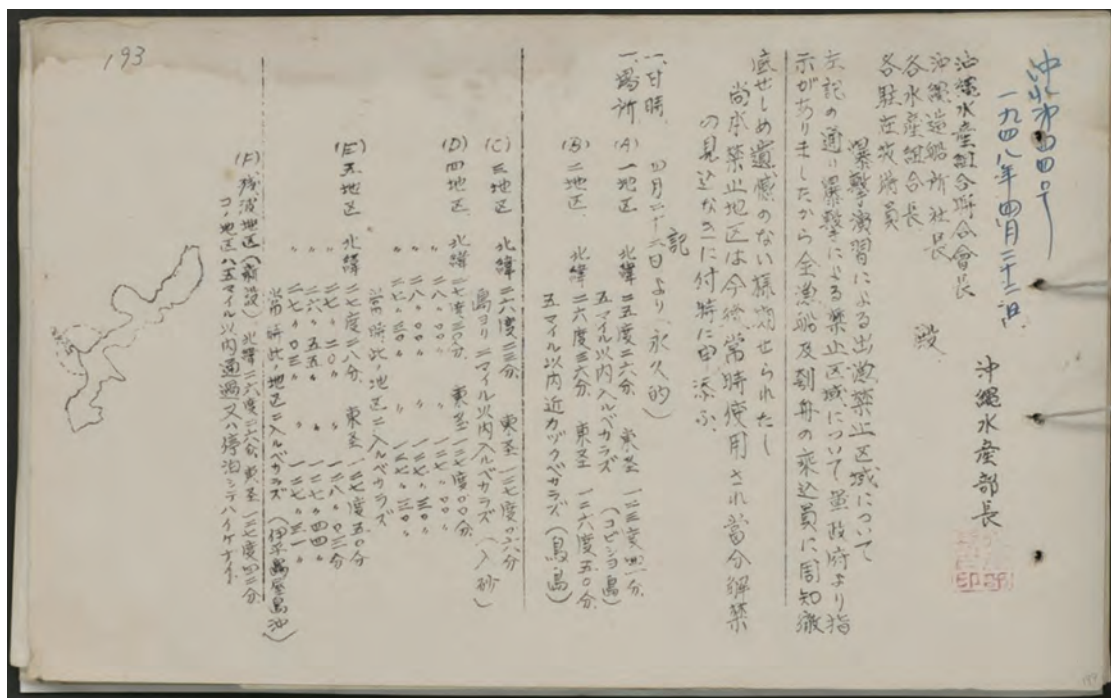 沖水第四四〇号
一九四八年四月二十二日
沖縄水産部長
沖縄水産組合聯合會長
沖縄造船所社長
各水産組合長
各駐在技術員
殿
爆撃演習による出漁禁止区域について
左記の通り爆撃による禁止区域について軍政府より指
示がありましたから全漁船及刳舟の乘込員に周知徹
底せしめ遺憾のない様期せられたし
尚本禁止地区は今後常時使用され當分解禁
の見込なきに付特に申添ふ、
記
一、日時 四月二十六日より(永久的)
一、場所 (A) 一地区 北緯 二五度二六分 東圣 一二三度四一分
五マイル以内入ルベカラズ (コビシヨ島)
(B) 二地区 北緯 二六度三六分 東圣 一二六度五〇分
五マイル以内近カヅクベカラズ (鳥島)
(C) 三地区 北緯 二六度二三分 東圣 一二七度〇六分
島ヨリ二マイル以内入ルベカラズ (入砂)
(D) 四地区 北緯 二七度三〇分 東圣 一二七度〇〇分
〃 二八〃〇〇〃 〃 一二七〃〇〇〃
〃 二八〃〇〇〃 〃 一二七〃三〇〃
〃 二七〃三〇〃 〃 一二七〃三〇〃
常時此ノ地区ニ入ルベカラズ
(E) 五地区 北緯 二七度一八分 東圣 一二七度五〇分
〃 二七〃二〇〃 〃 一二八〃〇三分
〃 二六〃五五〃 〃 一二七〃四四〃
〃 二七〃〇三〃 〃 一二七〃三一〃
常時此ノ地区ニ入ルベカラズ (伊平屋島沖)
(F) 残波地区(新設) 北緯二六度二六分 東圣 一二七度四二分
コノ地区ハ五マイル以内通過又ハ停泊シテハイケナイ
193